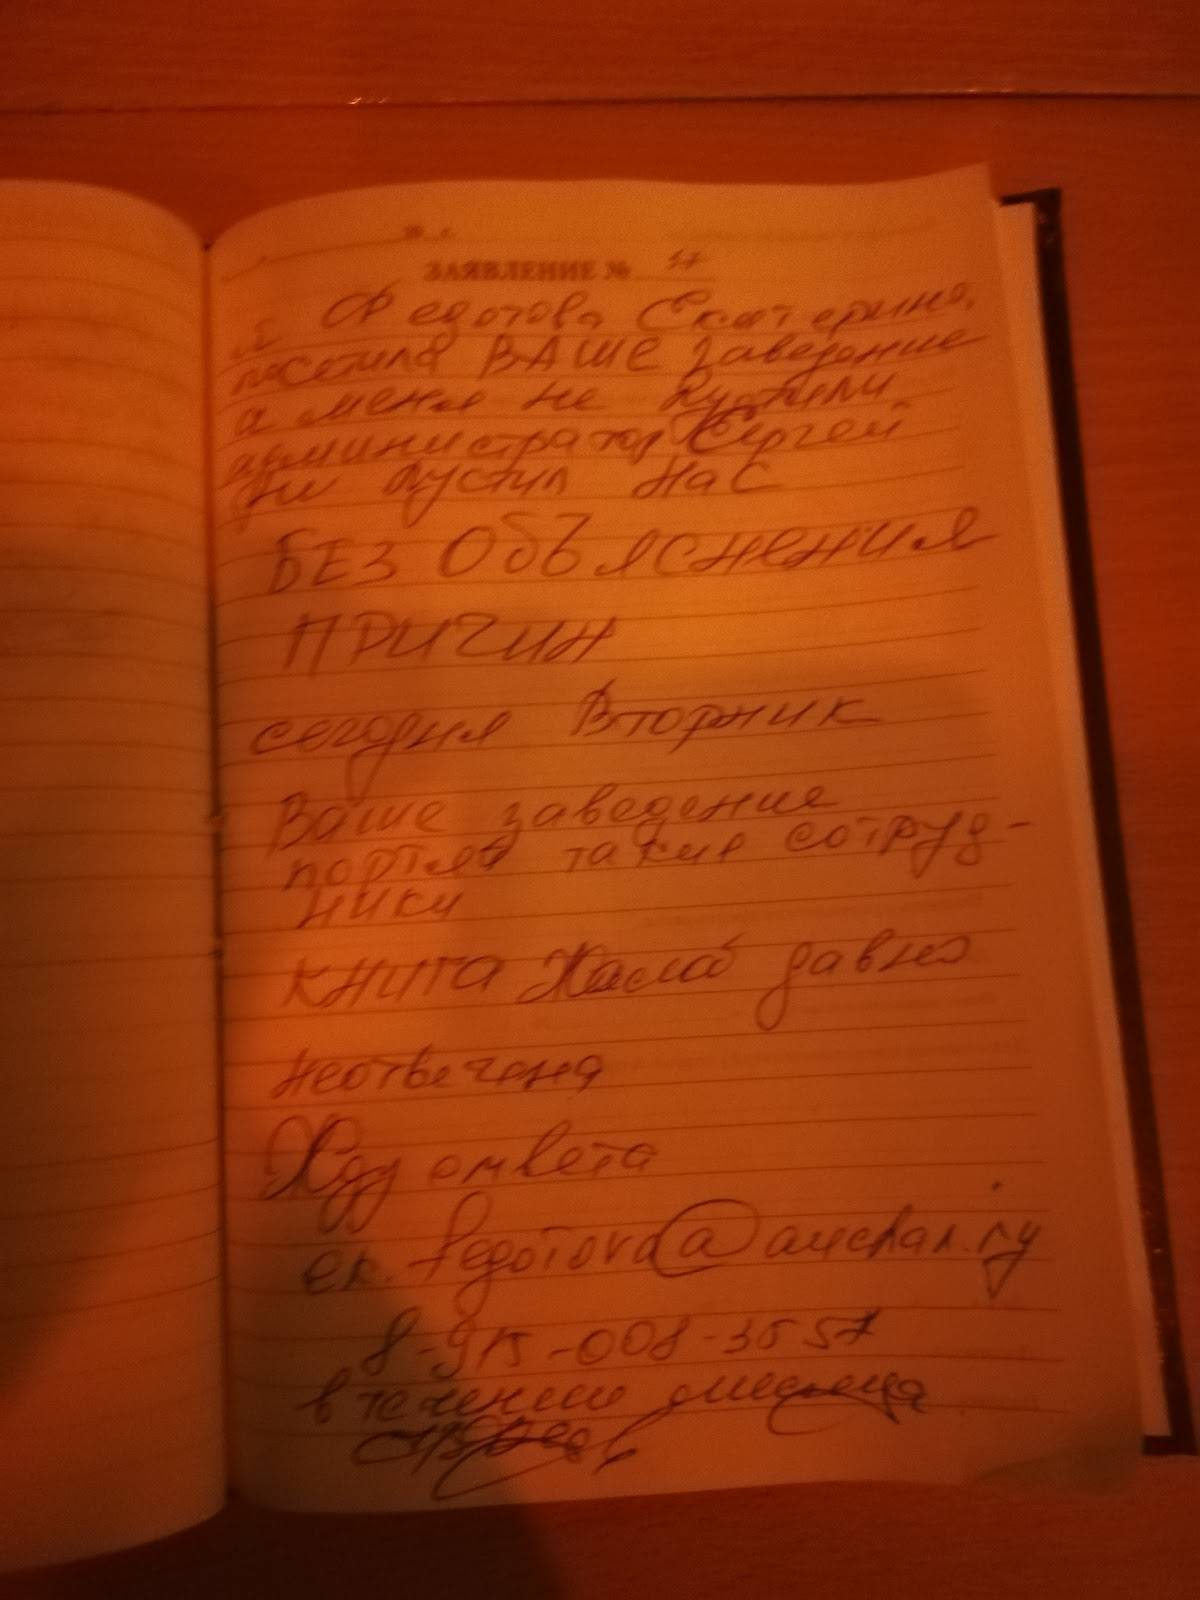 ЗАЯВЛЕНИЕ №
Я Федотова Екатерина,
посетила ВАШЕ заведение
а меня не пустили
администратор Сергей
не пустил нас
БЕЗ ОбЪяснения
ПРИЧИН
сегодня Вторник
Ваше заведение
портят такие сотруд-
ники
КНИГА Жалоб давно
неотвечена
Жду ответа
ek.fedotova@auchan.ru
8-915-008-3557
в течении месяца